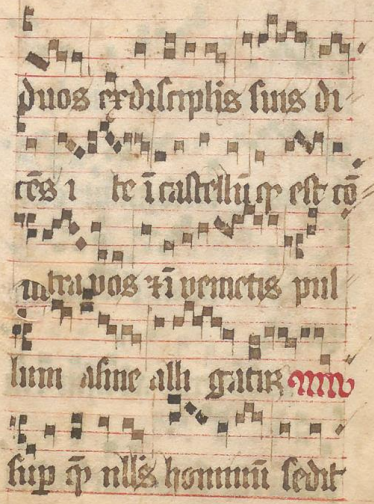 duos ex discipulis suis di
cēs i te ī castellū qͥ est cō
tra vos et ī venietis pul
lum asine alli gatur
sup qͥ nllꝰ hominū sedit